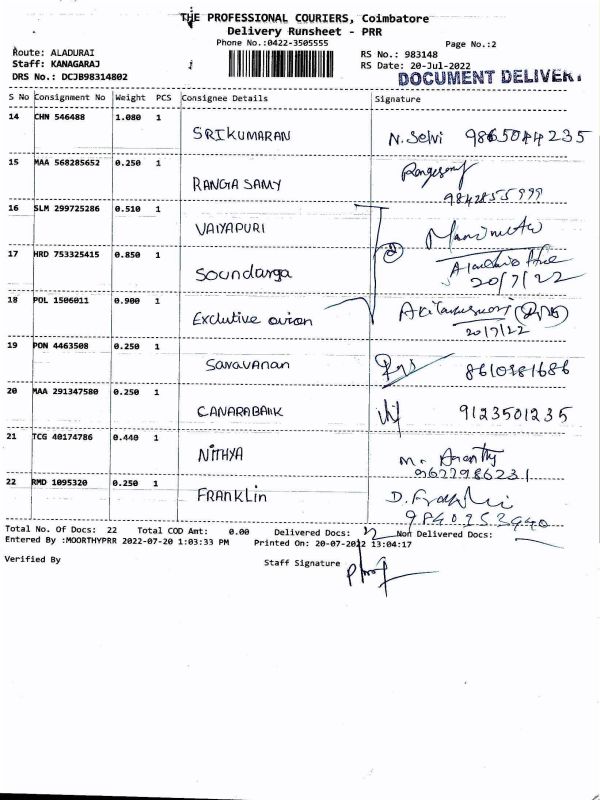 THE PROFESSIONAL COURIERS, Coimbatore
Delivery Runsheet - PRR
Phone No.:0422-3505555
Page No.:2
Route: ALADURAI
RS No.: 983148
Staff: KANAGARAJ
RS Date: 20-Jul-2022
DRS No.: DCJB98314802
DOCUMENT DELIVER
S No Consignment No Weight PCS Consignee Details Signature
14 CHN 546488 1.080 1
SRIKUMARAN N. Selvi
15 MAA 568285652 0.250 1
RANGASAMY 9842855999
16 SLM 299725286 0.510 1
VAIYAPURI
17 HRD 753325415 0.850 1
Soundarya
20/7/22
18 POL 1506011 0.900 1
Exclutive
20/7/22
19 PON 4463508 0.250 1
Saravanan
20 MAA 291347580 0.250 1
CANARABANK 9123501235
21 TCG 40174786 0.440 1
NITHYA
9627986231
22 RMD 1095320 0.250 1
FRANKLin D.
Total No. Of Docs: 22 Total COD Amt: 0.00 Delivered Docs: Non Delivered Docs:
Entered By :MOORTHYPRR 2022-07-20 1:03:33 PM Printed On: 20-07-2022 13:04:17
Verified By Staff Signature